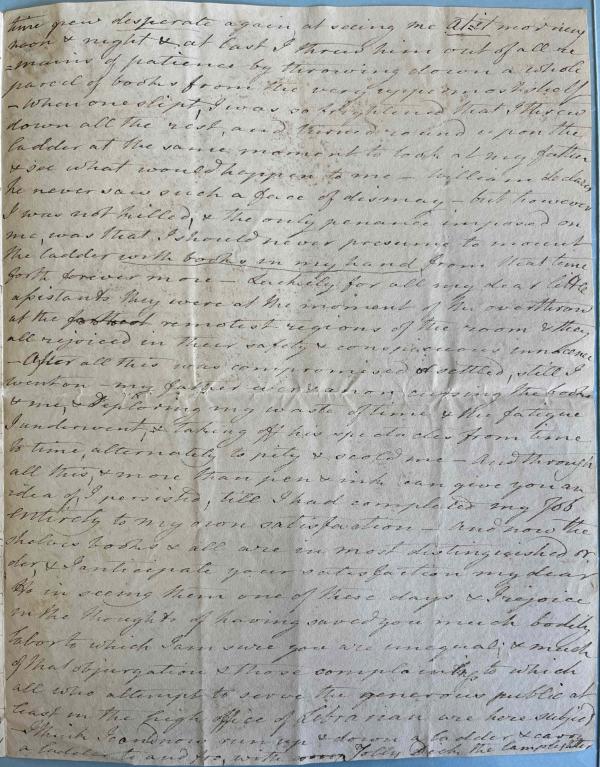 time grew desperate again at seeing me at it morning
noon & night & at last I threw him out of all re
-mains of patience by throwing down a whole
parcel of books from the very uppermost shelf
- when one slipt, I was so frightened that I threw
down all the rest, and turned round upon the
ladder at the same moment to look at my father
& see what would happen to me - William declares
he never saw such a face of dismay - but however
I was not killed, & the only penance imposed on
me, was that I should never presume to mount
the ladder with books in my hand, from that time
forth forever more - Luckily for all my dear little
assistants they were at the moment of the overthrow
at the farthest remotest regions of the room & they
all rejoiced in their safety & conspicuous innocence
- After all this was compromised or settled, still I
went on - my father ever & anon cursing the books
& me, & Deploring my waste of time & the fatigue
I underwent, & Taking off his spectacles from time
to time, alternately to pity & scold me - And through
all this, & more than pen & ink can give you an
idea of, I persisted, till I had completed my Job
entirely to my own satisfaction - And now the
shelves books & all are in most distinguished or
der & I anticipate your satisfaction my dear
in seeing them one of these days & I rejoice
in the thoughts of having saved you much bodily
labor to which I am sure you are unequal, & much
of that objurgation & those complaints to which
all who attempt to serve the generous public at
least in the high office of Librarian are here subject
- I think I can now run up & down a ladder & carry
a ladder to and fro, with Jolly Dick the lamplighter